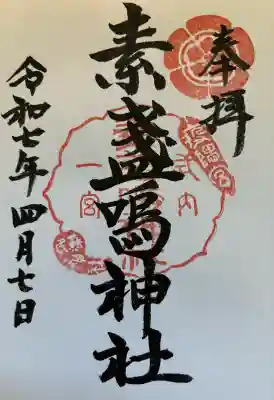 奉拝
素盞嗚神社
令和七年四月七日
一宮